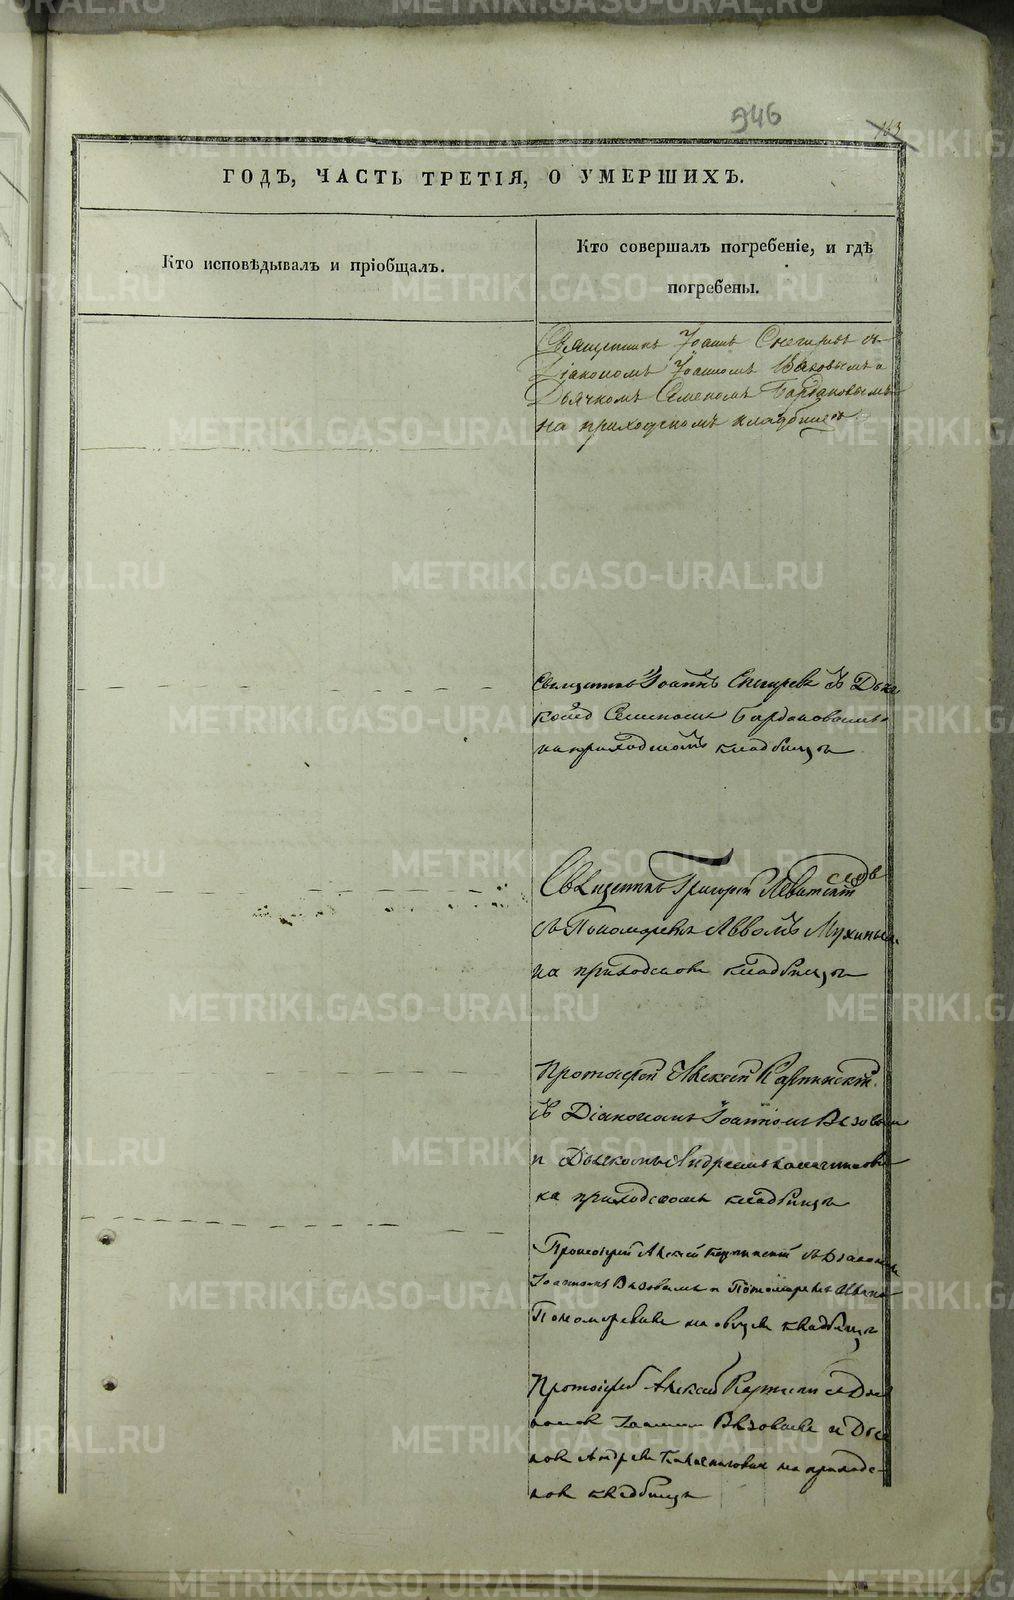 946
163
ГОДЪ, ЧАСТЬ ТРЕТІЯ, О УМЕРШИХЪ.
Кто исповѣдывалъ и пріобщалъ.
Кто совершалъ погребеніе, и гдѣ
погребены.
Священникъ Іоаннъ Снегиревъ съ
Діакономъ Іоанномъ Вязовымъ и
Дьячкомъ Семеномъ Бардаковымъ
на приходскомъ кладбищѣ
Священникъ Іоаннъ Снегиревъ съ Дьяч
комъ Семеномъ Бардаковымъ
на приходскомъ кладбищѣ
Священникъ Григорій Левитскій
съ Пономаремъ Мухинымъ
на приходскомъ кладбищѣ
Протоіерей Алексѣй Карпинскій
съ Діакономъ Іоанномъ Вязовым
и Дьячкомъ Андреемъ
на приходскомъ кладбищѣ
Протоіерей Алексѣй Карпинскій съ Діакон
Іоанномъ Вязовымъ и Пономаремъ
Пономаревымъ на общемъ кладбищѣ
Протоіерей Алексѣй съ Діа
Іоанномъ Вязовымъ и Дьяч
Андреемъ на приходс-
комъ кладбищѣ
METRIKI.GASO-URAL.RU